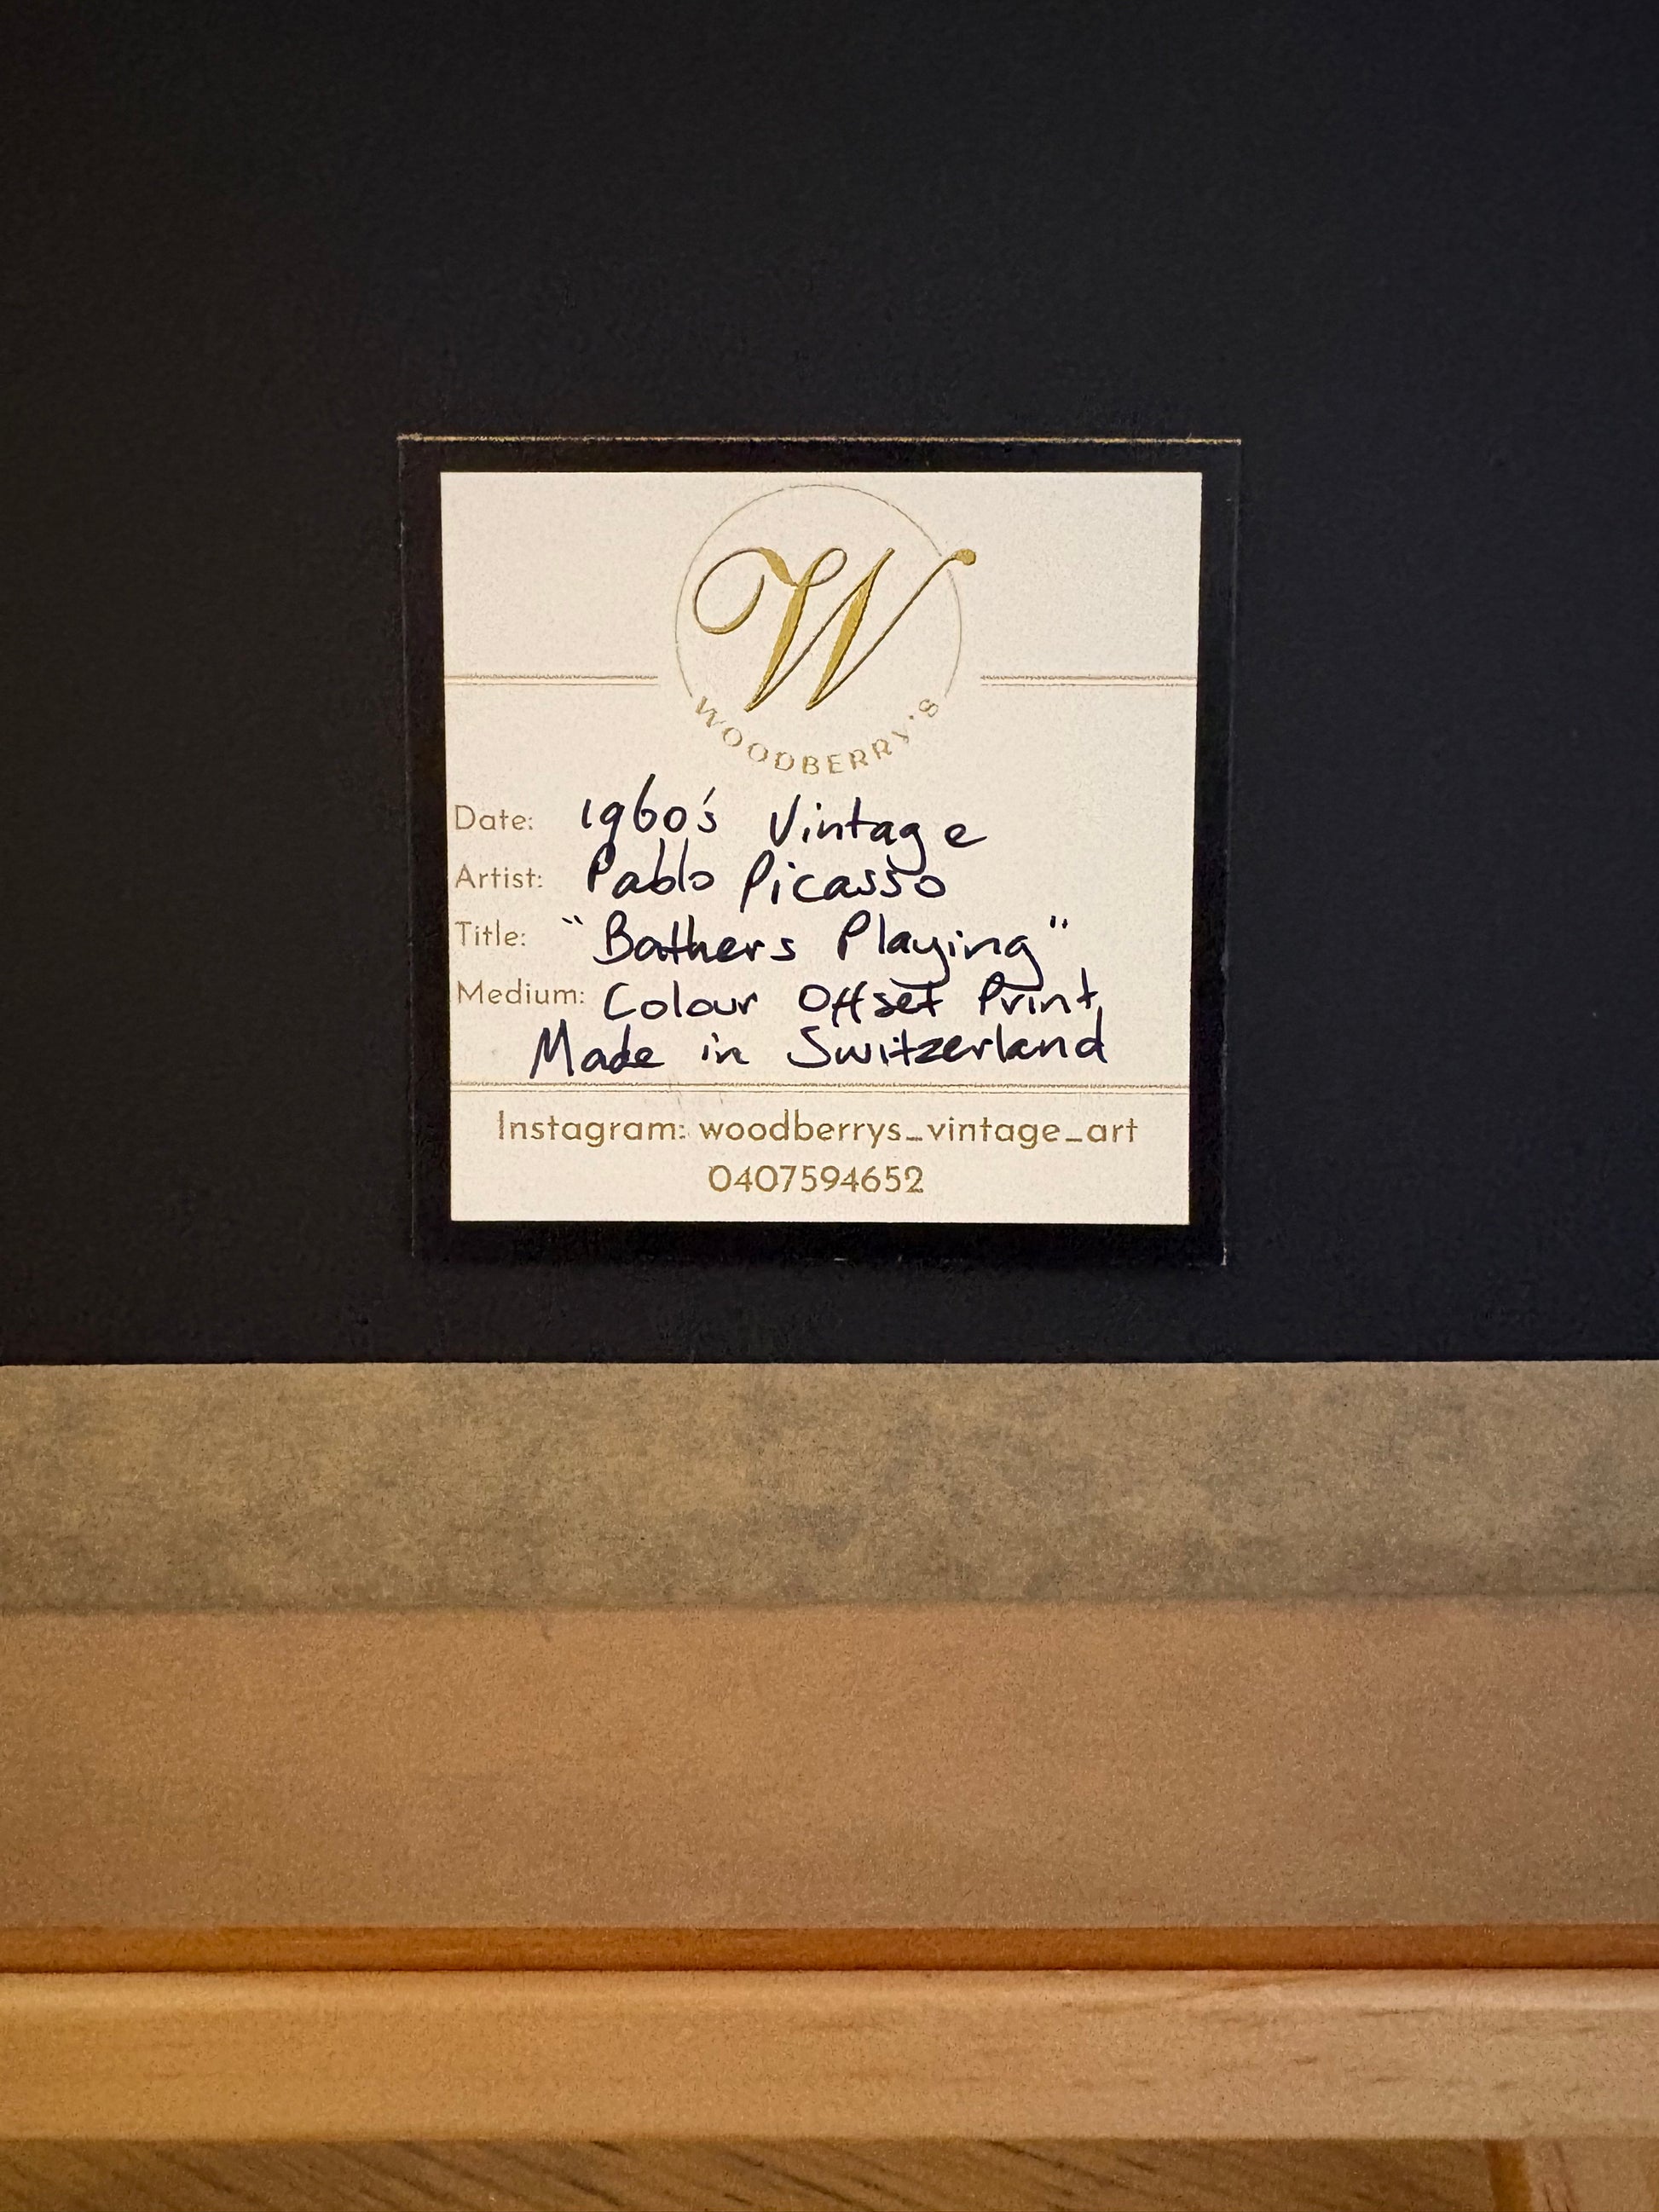 W
WOODBERRY'S
Date: 1960's Vintage
Artist: Pablo Picasso
Title: "Bathers Playing"
Medium: Colour Offset Print,
Made in Switzerland
Instagram: woodberrys_vintage_art
0407594652